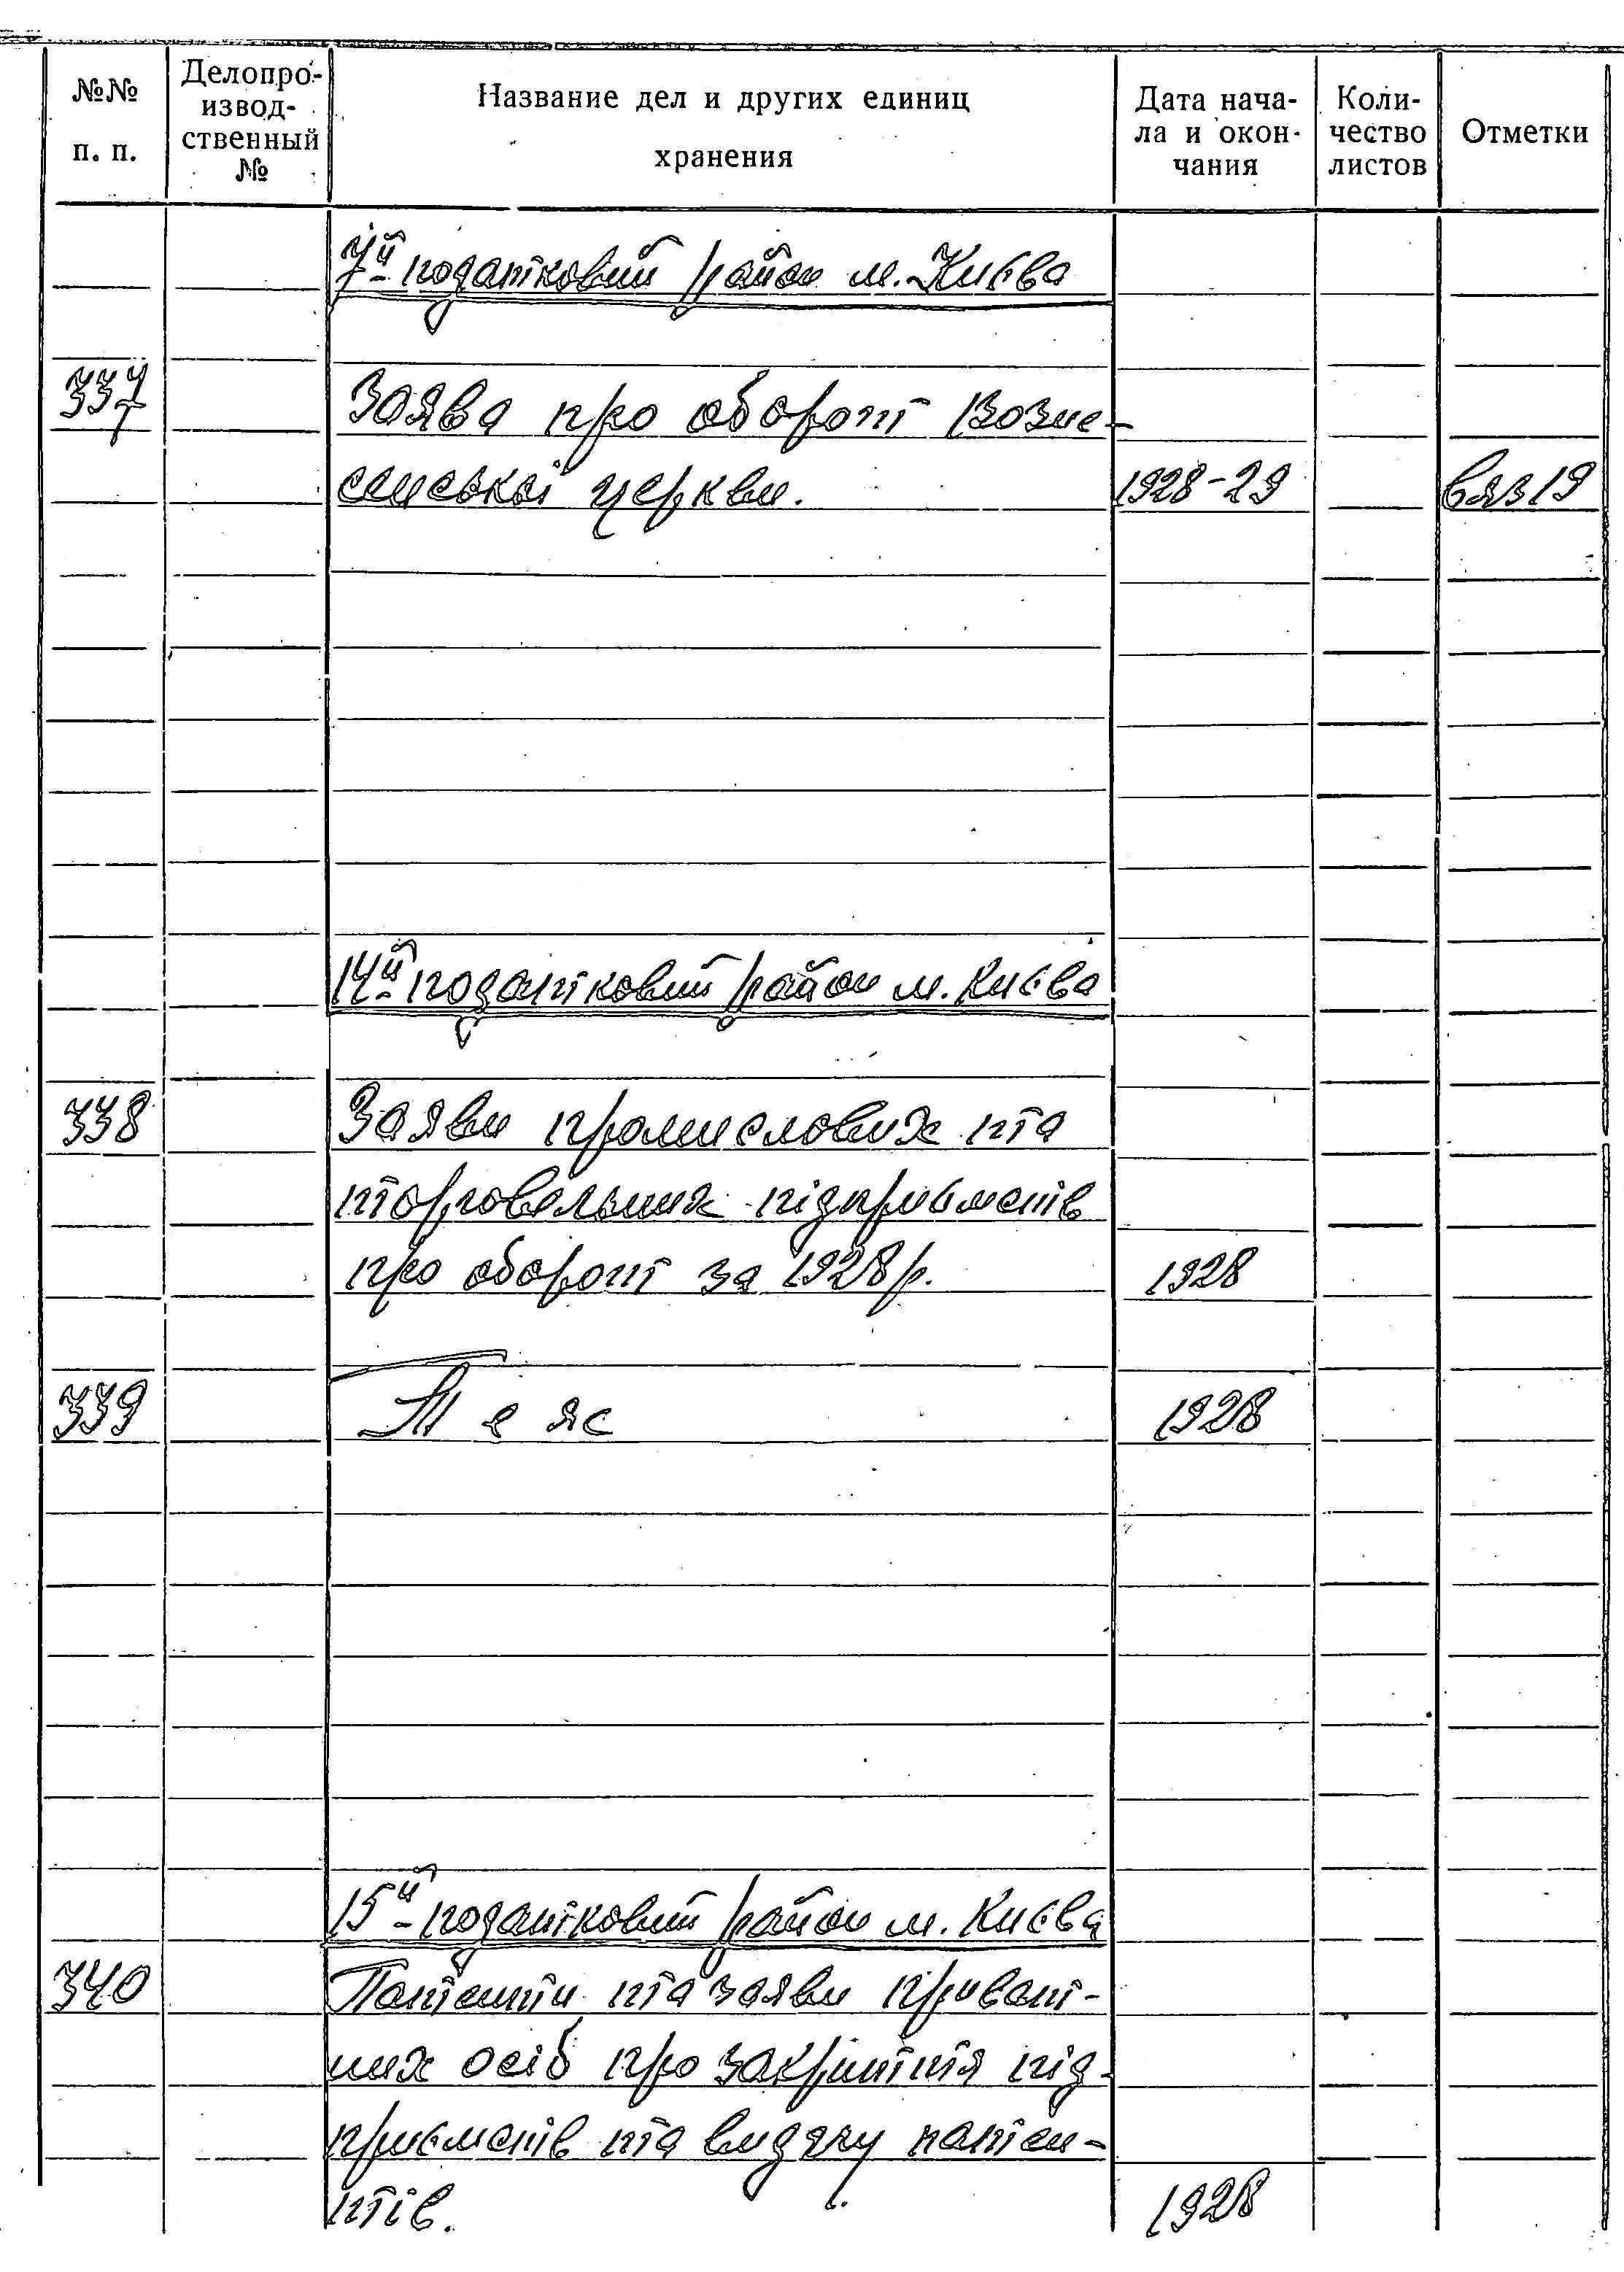 №№ п. п.
Делопро-
извод-
ственный
№
Название дел и других единиц
хранения
Дата нача-
ла и окон-
чания
Коли-
чество
листов
Отметки
7й податковий район м. Києва
337 Заява про оборот Возне-
сенської церкви. 1928-29 вяз 19
14й податковий район м. Києва
338 Заяви промислових та
торговельних підприємств
про оборот за 1928 р. 1928
339 Те яс 1928
15й податковий район м. Києва
340 Патенти та заяви приват-
них осіб про закриття під-
приємств та видачу патен-
тів. 1928